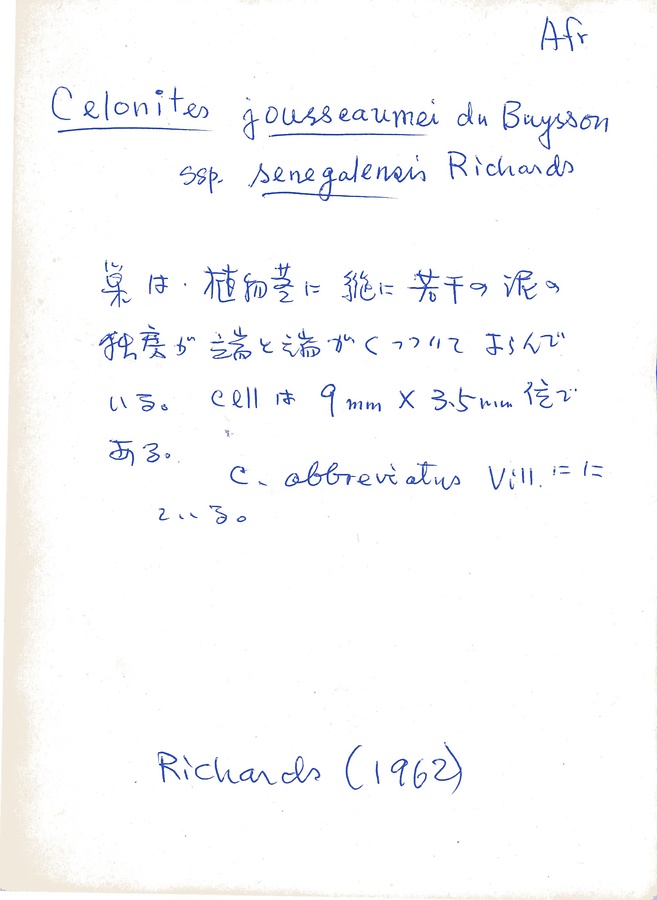 Afr
Celonites jousseaumei du Buysson
ssp. senegalensis Richards
巣は、植物茎に縦に若干の泥の
独房が端と端がくっついてならんで
いる。 cell は 9mm × 3.5mm 位で
ある。
C. abbreviatus Vill. に に
ている。
Richards (1962)